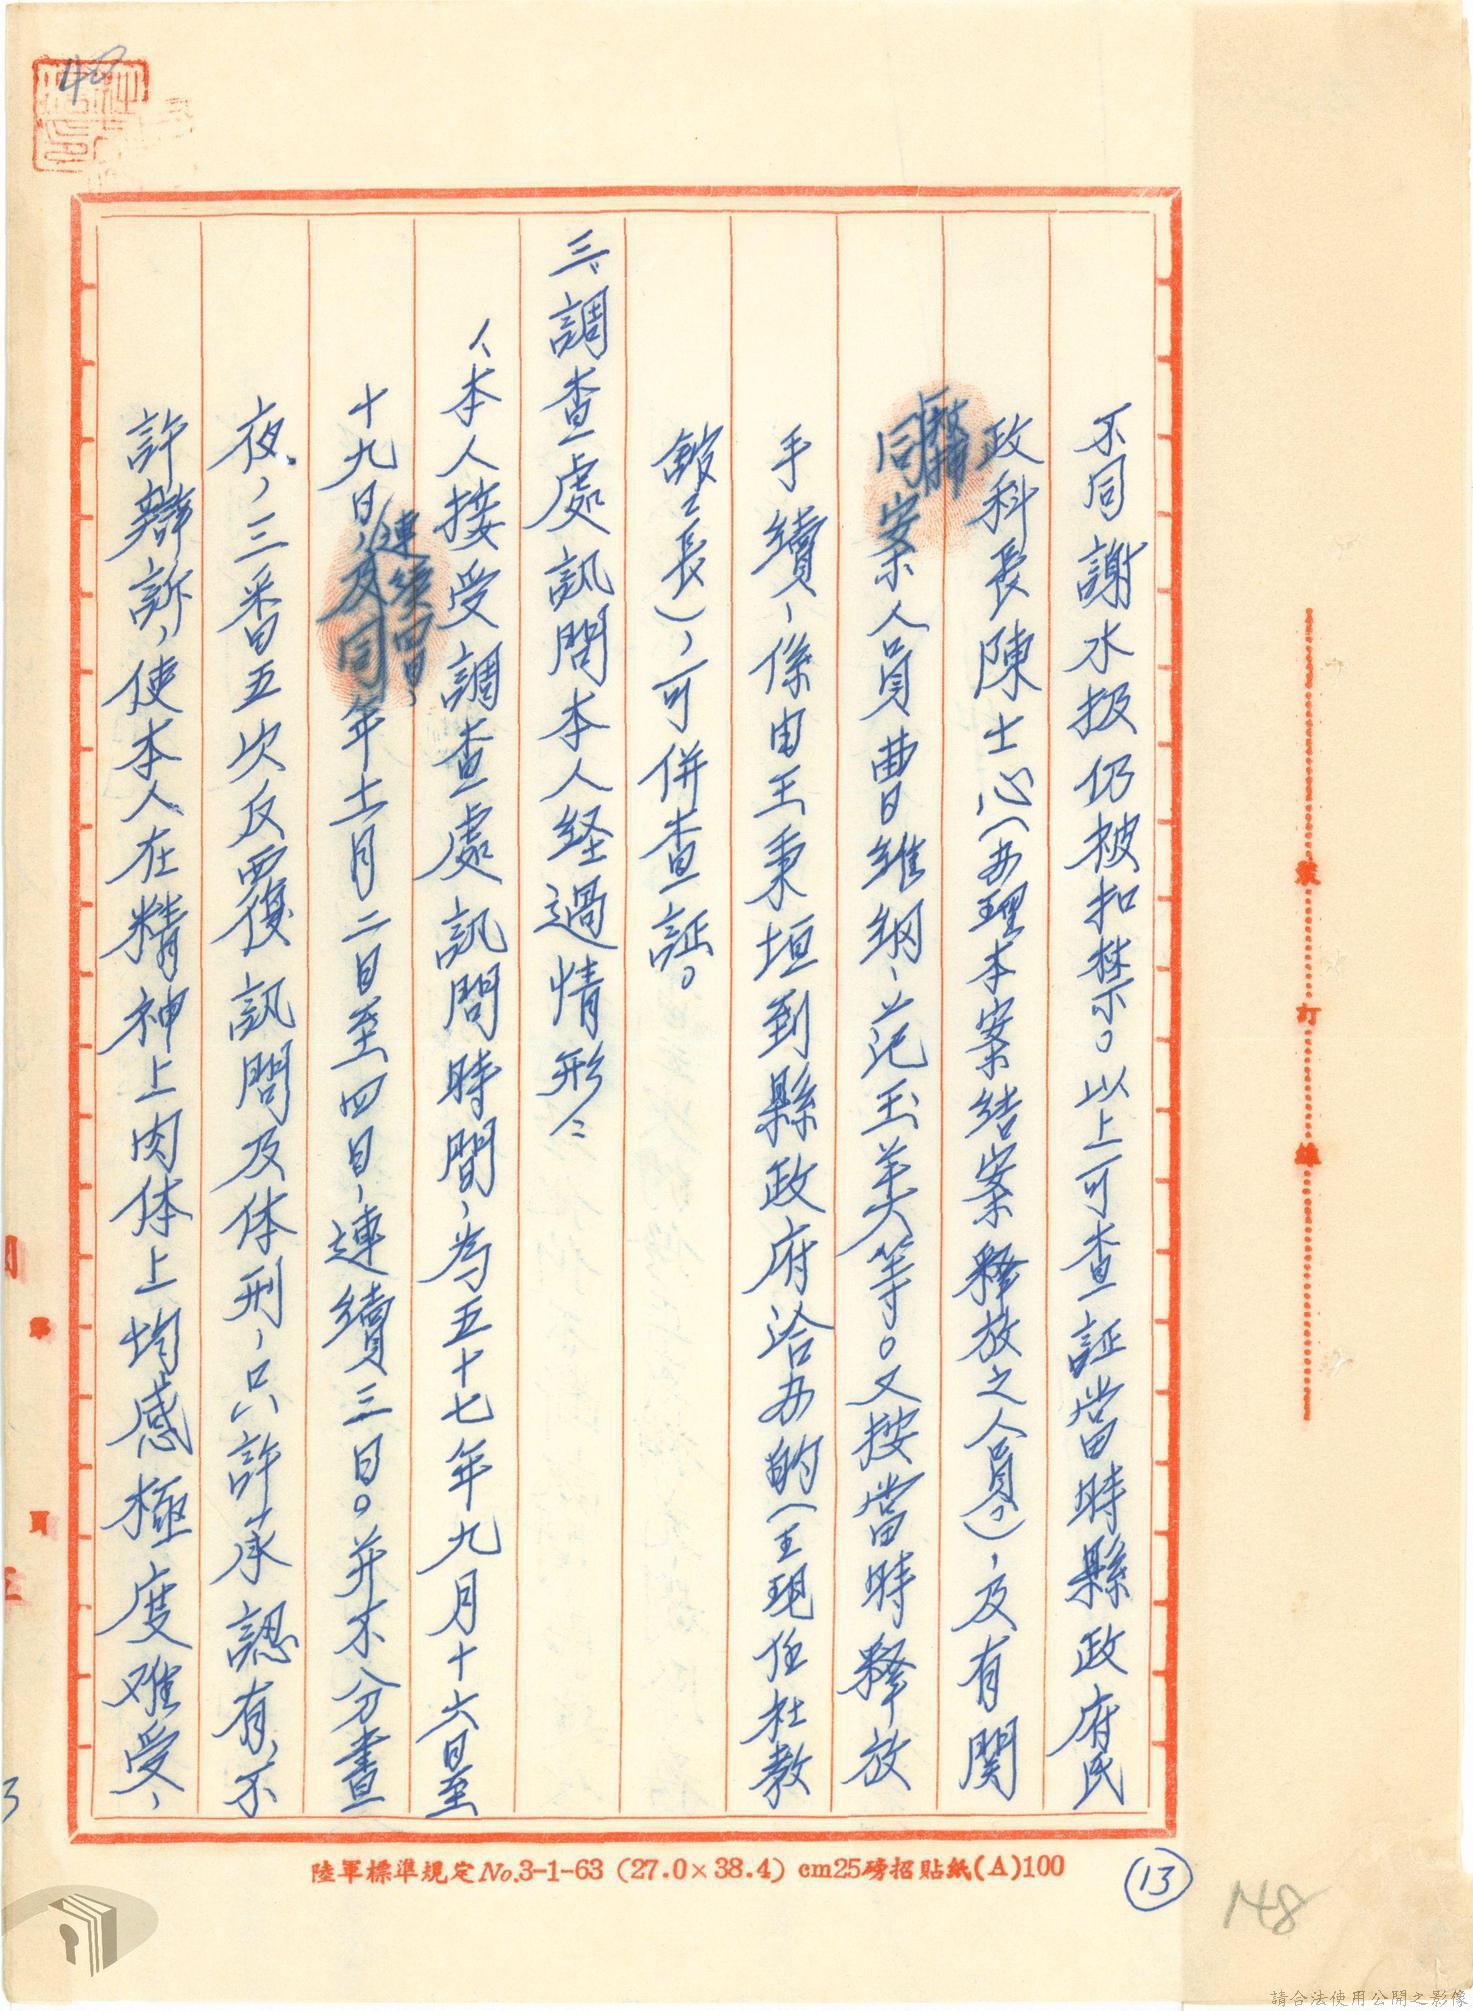 不同謝水扱仍被扣禁。以上可查証當時縣政府民
政科長陳士心（办理本案結案釋放之人員。），及有関
同案人員曹維綱、范玉美等。又按當時釋放
手續，係由王秉垣到縣政府洽办的（王現任社教
館館長），可併查証。
三、調查處訊問本人経過情形：
人、本人接受調查處訊問時間，為五十七年九月十六日至
十九日，連続四日，及同年十一月二日至四日，連續三日。并不分晝
夜，三番五次反覆訊問及体刑，只許承認有，不
許辯訴，使本人在精神上肉体上均感極度难受，
陸軍標準規定No.3-1-63 (27.0×38.4) cm25磅招貼紙(A)100
13
148
48
裝 訂 線
第
頁
3
請合法使用公開之影像